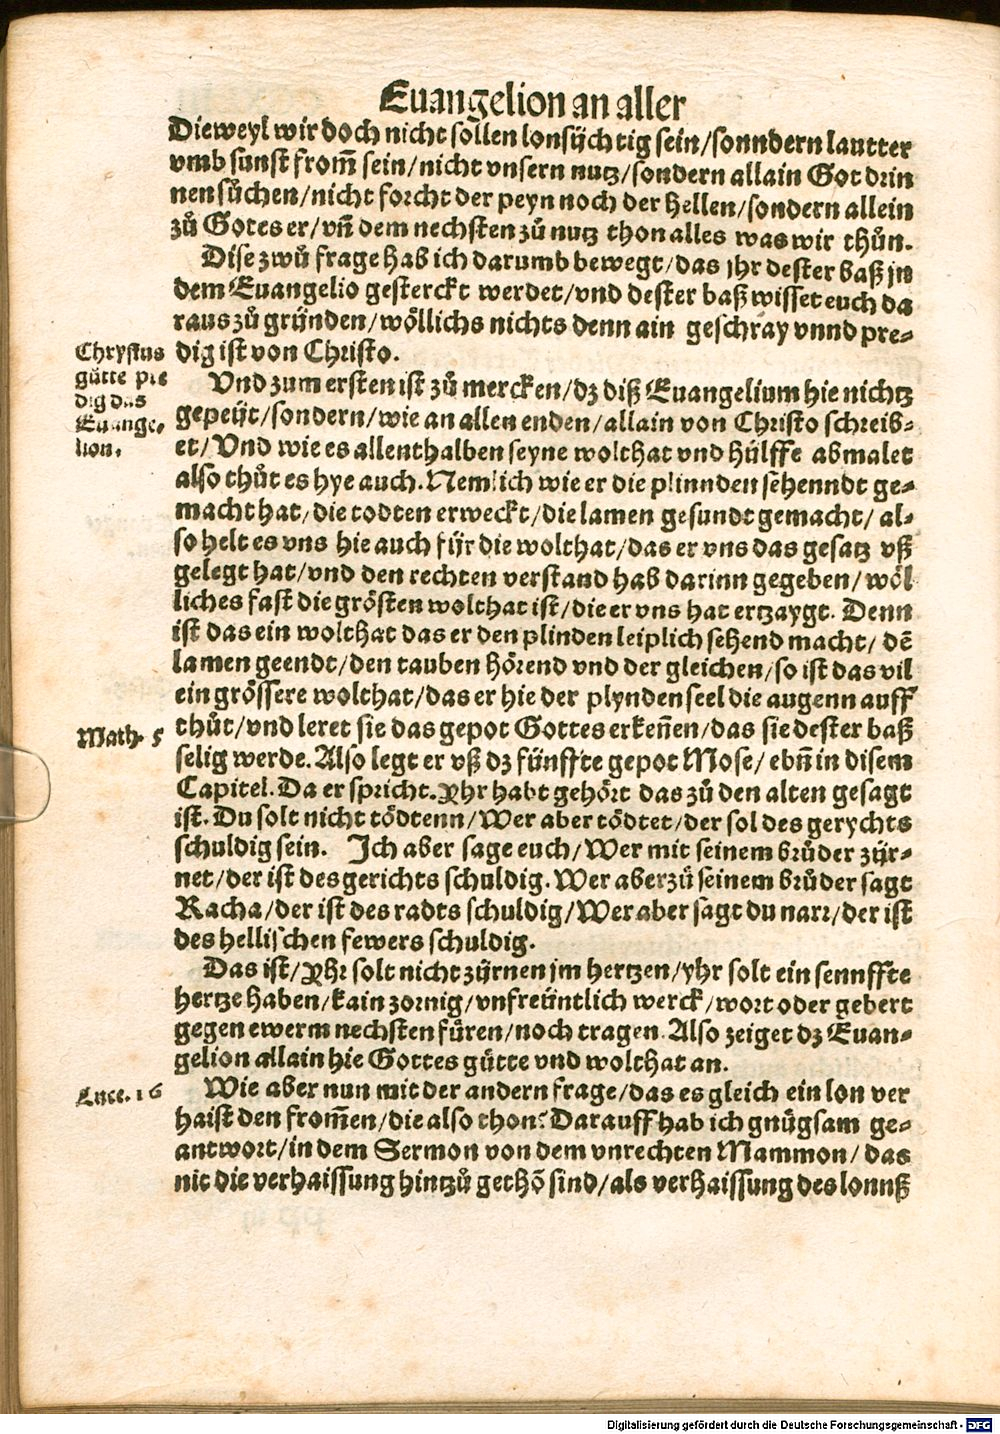 Euangelion an aller
Dieweyl wir doch nicht sollen lonsüchtig sein/sonndern lautter
vmb sunst from̃ sein/nicht vnsern nutz/sondern allain Got drin
nen sůchen/nicht forcht der peyn noch der hellen/sondern allein
zů Gotes er/vñ dem nechsten zů nutz thon alles was wir thůn.
Dise zwů frage hab ich darumb bewegt/das jhr dester baß jn
dem Euangelio gesterckt werdet/vnd dester baß wisset euch da
raus zů gründen/wöllichs nichts denn ain geschray vnnd pre⸗
dig ist von Christo.
Chrystus
gůtte pre
dig das
Euange⸗
lion.
Vnd zum ersten ist zů mercken/dz diß Euangelium hie nichtz
gepeüt/sondern/wie an allen enden/allain von Christo schreib⸗
et/Vnd wie es allenthalben seyne wolthat vnd hülffe abmalet
also thůt es hye auch. Nemlich wie er die plinnden sehenndt ge⸗
macht hat/die todten erweckt/die lamen gesundt gemacht/al⸗
so helt es vns hie auch für die wolthat/das er vns das gesatz vß
gelegt hat/vnd den rechten verstand hab darinn gegeben/wöl
liches fast die grösten wolthat ist/die er vns hat ertzaygt. Denn
ist das ein wolthat das er den plinden leiplich sehend macht/dē
lamen geendt/den tauben hörend vnd der gleichen/so ist das vil
ein grössere wolthat/das er hie der plynden seel die augenn auff
thůt/vnd leret sie das gepot Gottes erkeñen/das sie dester baß
Math. 5
selig werde. Also legt er vß dz fünffte gepot Mose/ebñ in disem
Capitel. Da er spricht. Yhr habt gehört das zů den alten gesagt
ist. Du solt nicht tödtenn/Wer aber tödtet/der sol des gerychts
schuldig sein. Ich aber sage euch/Wer mit seinem brůder zür⸗
net/der ist des gerichts schuldig. Wer aber zů seinem brůder sagt
Racha/der ist des radts schuldig/Wer aber sagt du narr/der ist
des hellischen fewers schuldig.
Das ist/Yhr solt nicht zürnen jm hertzen/yhr solt ein sennffte
hertze haben/kain zornig/vnfreüntlich werck/wort oder gebert
gegen ewerm nechsten fůren/noch tragen. Also zeiget dz Euan⸗
gelion allain hie Gottes gůtte vnd wolthat an.
Luce. 16
Wie aber nun mit der andern frage/das es gleich ein lon ver
haist den from̃en/die also thon? Darauff hab ich gnůgsam ge⸗
antwort/in dem Sermon von dem vnrechten Mammon/das
nit die verhaissung hintzů gethō sind/als verhaissung des lonnß
Digitalisierung gefördert durch die Deutsche Forschungsgemeinschaft - DFG